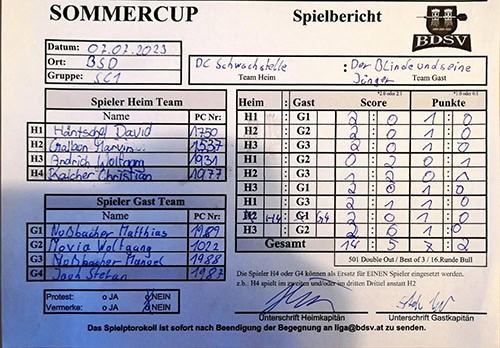 SOMMERCUP
Spielbericht
BDSV
Datum: 07.07.2023
Ort: BSD
Gruppe: SC1
DC Schwachstelle
Team Heim
Der Blinde und seine
Jünger
Team Gast
Spieler Heim Team
Name PC Nr:
H1 Häntschel David 1750
H2 Marvin 1537
H3 Andrich Wolfgang 1931
H4 Kalcher Christian 1977
Spieler Gast Team
Name PC Nr:
G1 Noßbacher Matthias 1989
G2 Novia Wolfgang 1022
G3 Noßbacher Manuel 1988
G4 Stefan 1987
Protest: o JA o NEIN
Vermerke: o JA o NEIN
*2:0 oder 2:1 *1:0 oder 0:1
Heim : Gast Score Punkte
H1 : G1 2 : 0 1 : 0
H2 : G2 2 : 0 1 : 0
H3 : G3 2 : 0 1 : 0
H1 : G2 0 : 2 0 : 1
H2 : G3 1 : 2 0 : 1
H3 : G1 2 : 0 1 : 0
H1 : G3 2 : 1 1 : 0
H4 : G4 2 : 0 1 : 0
H3 : G2 2 : 0 1 : 0
Gesamt 14 : 5 7 : 2
501 Double Out / Best of 3 / 16.Runde Bull
Die Spieler H4 oder G4 können als Ersatz für EINEN Spieler eingesetzt werden.
z.b.: H4 spielt im zweiten und/oder im dritten Drittel anstatt H2
Unterschrift Heimkapitän
Unterschrift Gastkapitän
Das Spielprotokoll ist sofort nach Beendigung der Begegnung an liga@bdsv.at zu senden.